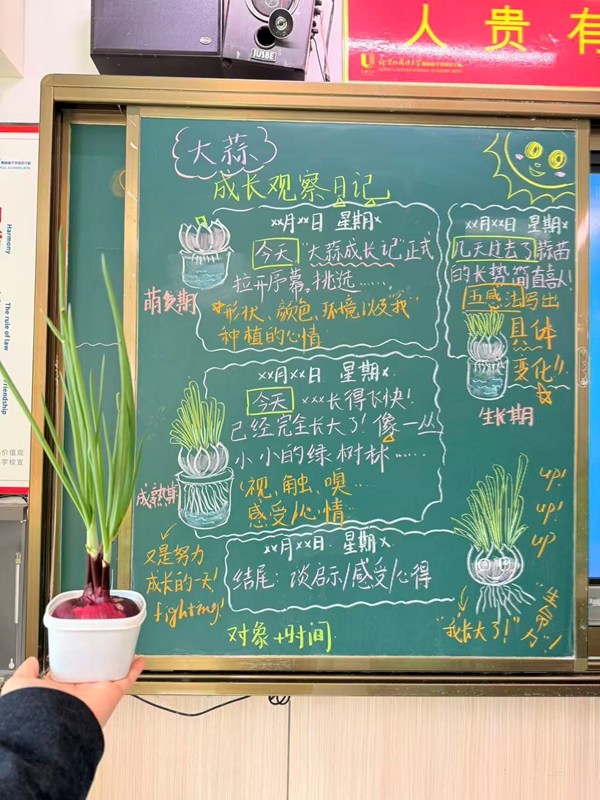 JUSBE
人 贵 有
Harmony
The rule of law
Friendship
大蒜
成长观察日记
xx月xx日 星期x
今天"大蒜成长记"正式
拉开序幕,挑选……
形状、颜色、环境以及我
种植的心情
萌发期
xx月xx日 星期x
几天过去了蒜苗
的长势简直喜人!
五感法写出
具体
变化!!
生长期
xx月xx日 星期x.
今天 xxx长得飞快!
已经完全长大了!像一丛
小小的绿树林……
视、触、嗅……
感受/心情
成熟期
又是努力
成长的一天!
fighting!
xx月xx日 星期x
结尾:谈启示/感受/心得
对象+时间
up!
up!
up
"我长大了!"
"生命力"!